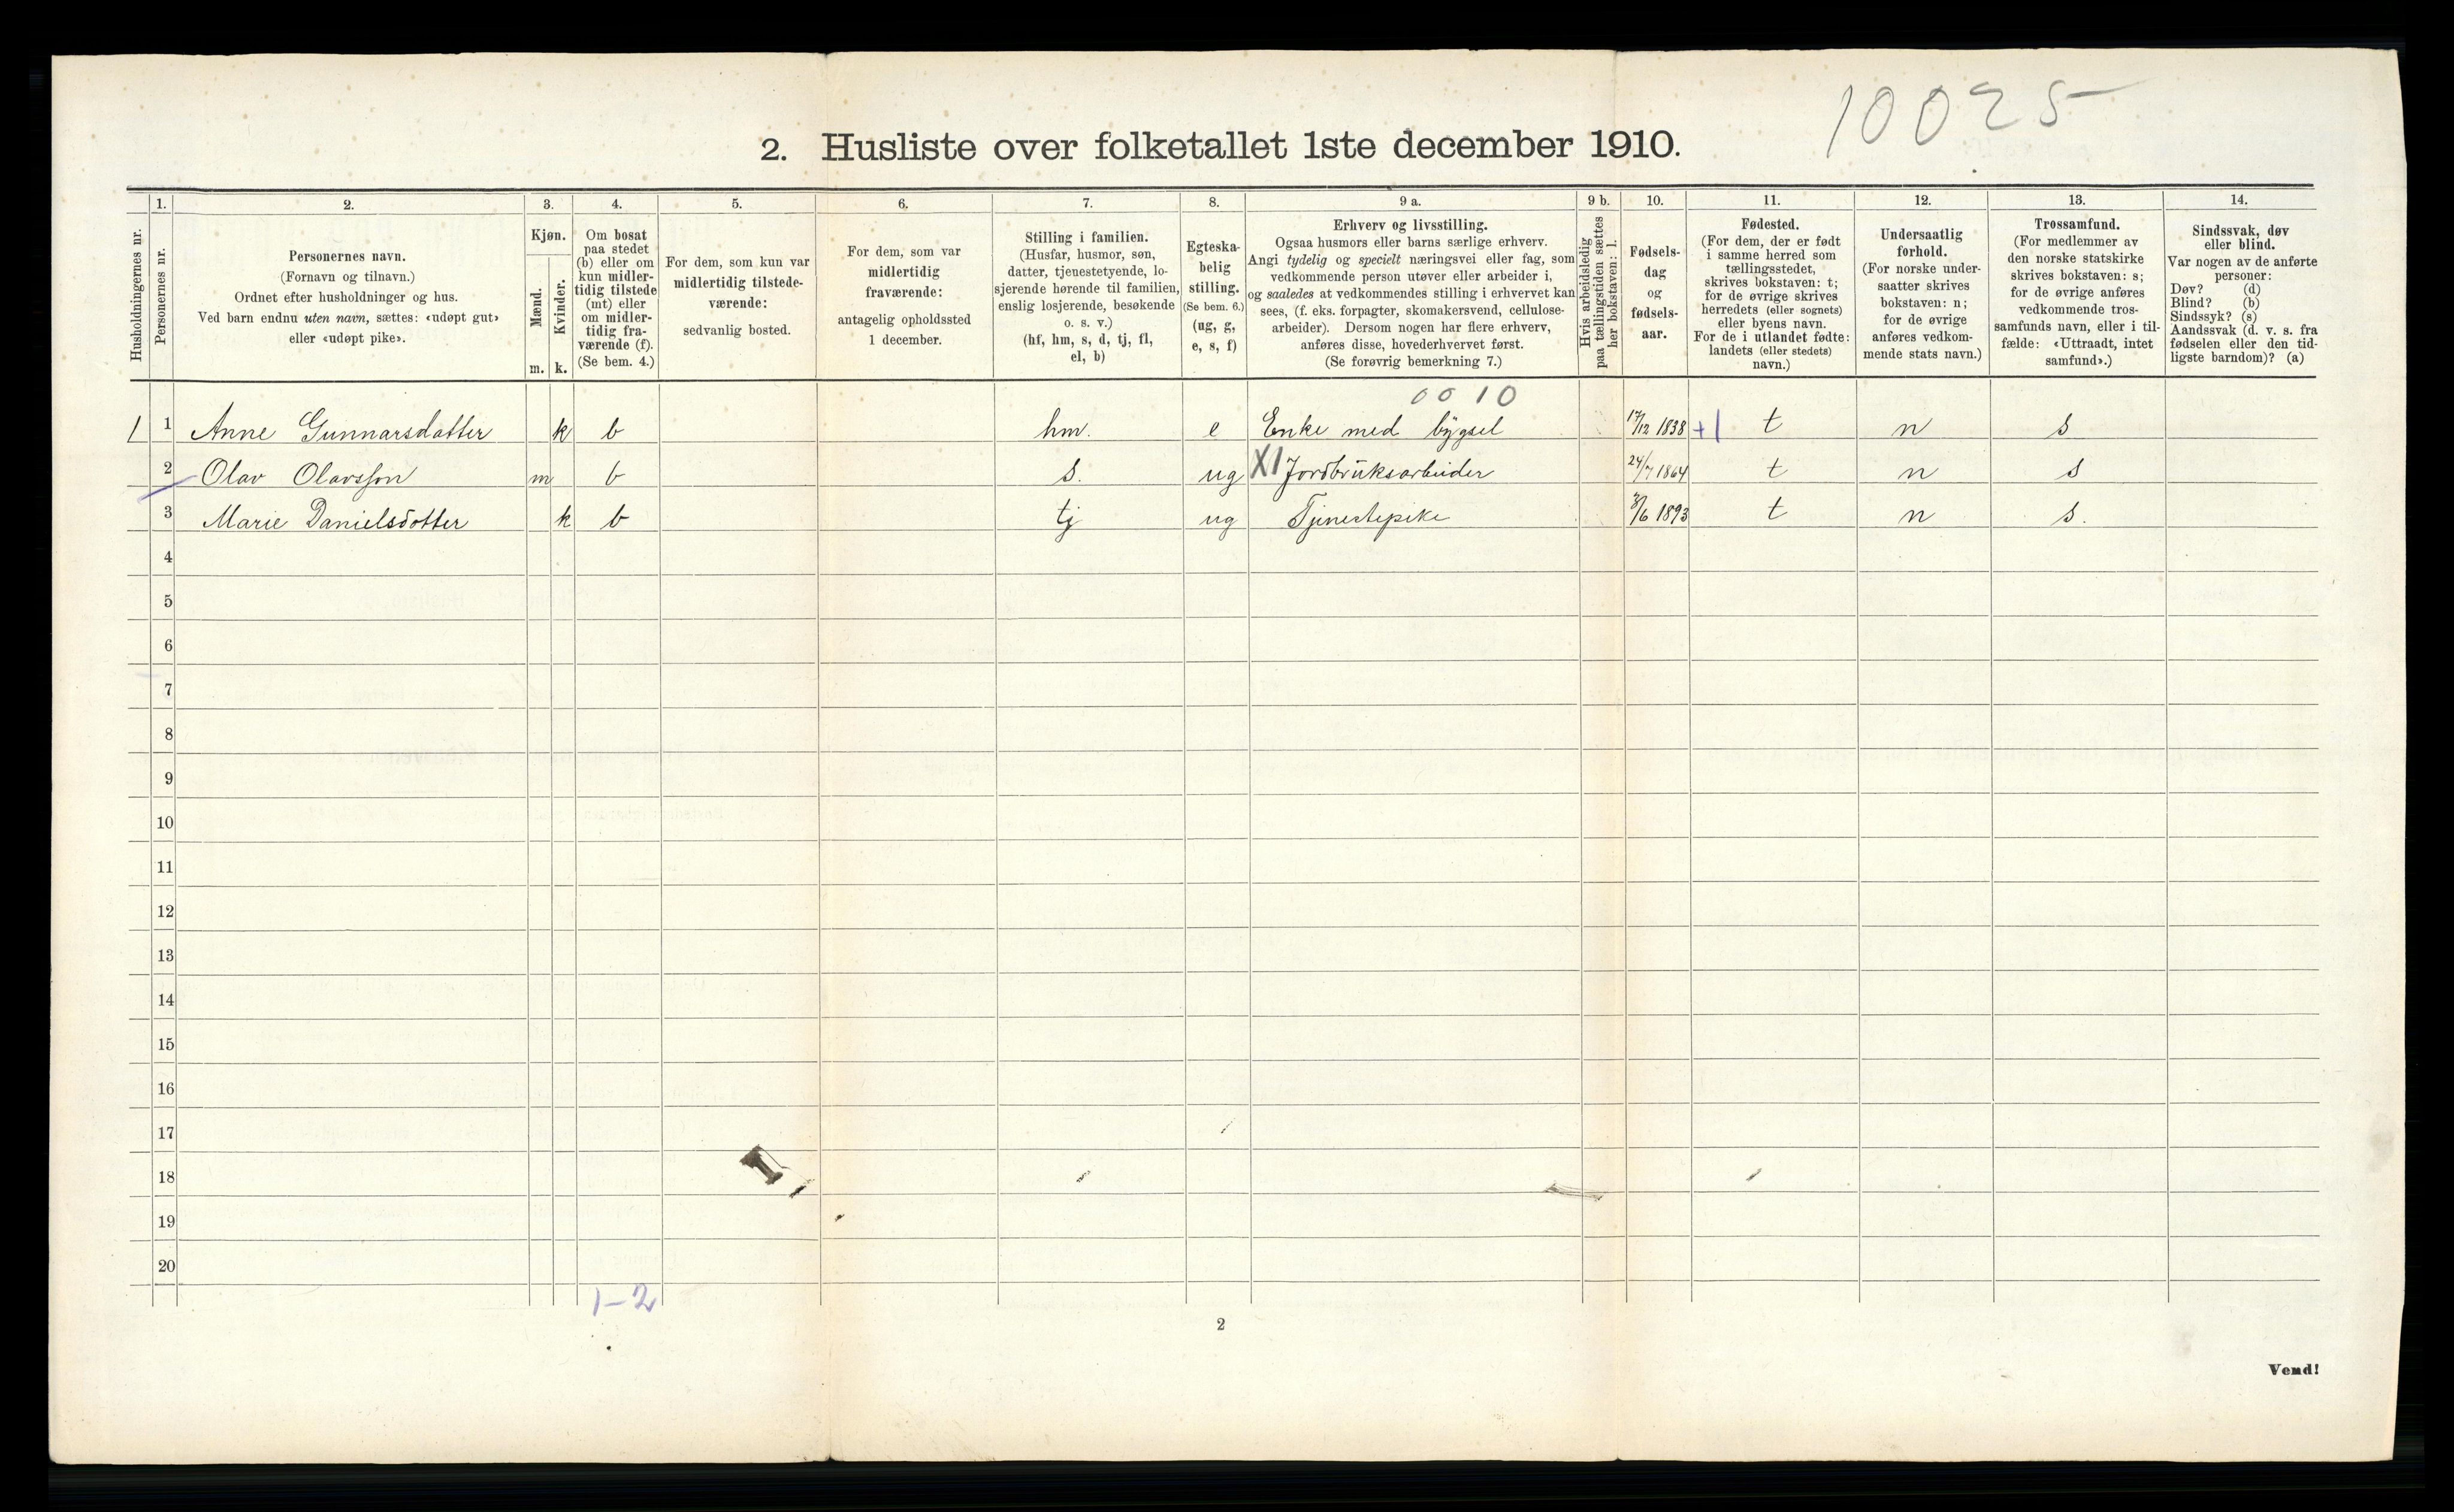 10025
2. Husliste over folketallet 1ste december 1910.
Husholdningernes nr.
1.
Personernes nr.
2.
Personernes navn.
(Fornavn og tilnavn.)
Ordnet efter husholdninger og hus.
Ved barn endnu uten navn, sættes: «udøpt gut»
eller «udøpt pike».
3.
Kjøn.
Mænd.
Kvinder.
m. k.
4.
Om bosat
paa stedet
(b) eller om
kun midler-
tidig tilstede
(mt) eller
om midler-
tidig fra-
værende (f).
(Se bem. 4.)
5.
For dem, som kun var
midlertidig tilstede-
værende:
sedvanlig bosted.
6.
For dem, som var
midlertidig
fraværende:
antagelig opholdssted
1 december.
7.
Stilling i familien.
(Husfar, husmor, søn,
datter, tjenestetyende, lo-
sjerende hørende til familien,
enslig losjerende, besøkende
o. s. v.)
(hf, hm, s, d, tj, fl,
el, b)
8.
Egteska-
belig
stilling.
(Se bem. 6.)
(ug, g,
e, s, f)
9 a.
Erhverv og livsstilling.
Ogsaa husmors eller barns særlige erhverv.
Angi tydelig og specielt næringsvei eller fag, som
vedkommende person utøver eller arbeider i,
og saaledes at vedkommendes stilling i erhvervet kan
sees, (f. eks. forpagter, skomakersvend, cellulose-
arbeider). Dersom nogen har flere erhverv,
anføres disse, hovederhvervet først.
(Se forøvrig bemerkning 7.)
9 b.
Hvis arbeidsledig
paa tællingstiden sættes
her bokstaven: l.
10.
Fødsels-
dag
og
fødsels-
aar.
11.
Fødested.
(For dem, der er født
i samme herred som
tællingsstedet,
skrives bokstaven: t;
for de øvrige skrives
herredets (eller sognets)
eller byens navn.
For de i utlandet fødte:
landets (eller stedets)
navn.)
12.
Undersaatlig
forhold.
(For norske under-
saatter skrives
bokstaven: n;
for de øvrige
anføres vedkom-
mende stats navn.)
13.
Trossamfund.
(For medlemmer av
den norske statskirke
skrives bokstaven: s;
for de øvrige anføres
vedkommende tros-
samfunds navn, eller i til-
fælde: «Uttraadt, intet
samfund».)
14.
Sindssvak, døv
eller blind.
Var nogen av de anførte
personer:
Døv? (d)
Blind? (b)
Sindssyk? (s)
Aandssvak (d. v. s. fra
fødselen eller den tid-
ligste barndom)? (a)
0010
1 1 Anne Gunnarsdatter k b hm. e Enke med bygsel 17/12 1838 +1 t n s
2 Olav Olavsson m b s. ug X1 Jordbruksarbeider 24/7 1864 t n s
3 Marie Danielsdotter k b tj ug Tjenestepike /6 1893 t n s.
4
5
6
7
8
9
10
11
12
13
14
15
16
17
18
19
20
1-2
2
Vend!